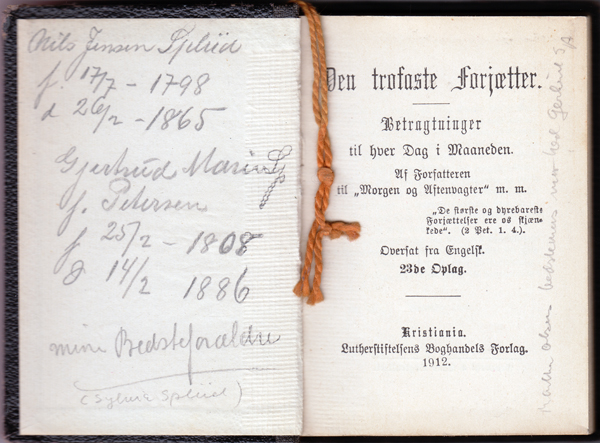 Nils Jensen Spliid
f. 17/7 - 1798
d 26/2 - 1865
Gjertrud Marin Sp
f. Petersen
f 25/2 - 1808
d 14/2 1886
mine Bedsteforældre
(Sylvia Spliid)
Den trofaste Forjætter.
Betragtninger
til hver Dag i Maaneden.
Af Forfatteren
til „Morgen og Aftenvagter“ m. m.
„De største og dyrebareste
Forjættelser ere os skjæn-
kede“. (2 Pet. 1. 4.).
Oversat fra Engelsk.
23de Oplag.
Kristiania.
Lutherstiftelsens Boghandels Forlag.
1912.
Olsens